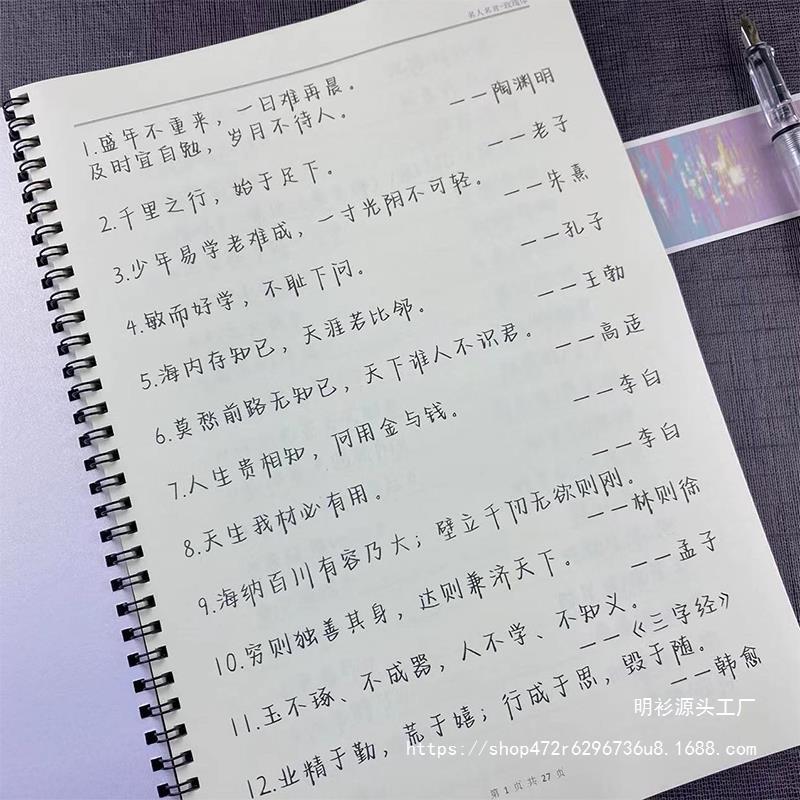 名人名言-玫瑰体
1.盛年不重来，一日难再晨。
及时宜自勉，岁月不待人。
——陶渊明
2.千里之行，始于足下。
——老子
3.少年易学老难成，一寸光阴不可轻。
——朱熹
4.敏而好学，不耻下问。
——孔子
5.海内存知己，天涯若比邻。
——王勃
6.莫愁前路无知己，天下谁人不识君。
——高适
7.人生贵相知，何用金与钱。
——李白
8.天生我材必有用。
——李白
9.海纳百川有容乃大；壁立千仞无欲则刚。
——林则徐
10.穷则独善其身，达则兼济天下。
——孟子
11.玉不琢、不成器，人不学、不知义。
——《三字经》
12.业精于勤，荒于嬉；行成于思，毁于随。
——韩愈
明衫源头工厂
https://shop472r6296736u8.1688.com/
第 1 页 共 27 页